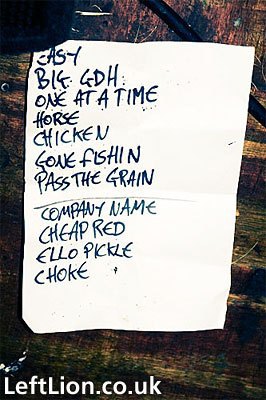 EASY
BIG GDH.
ONE AT A TIME
HORSE
CHICKEN
GONE FISHIN
PASS THE GRAIN
COMPANY NAME
CHEAP RED
ELLO PICKLE
CHOKE
LeftLion.co.uk